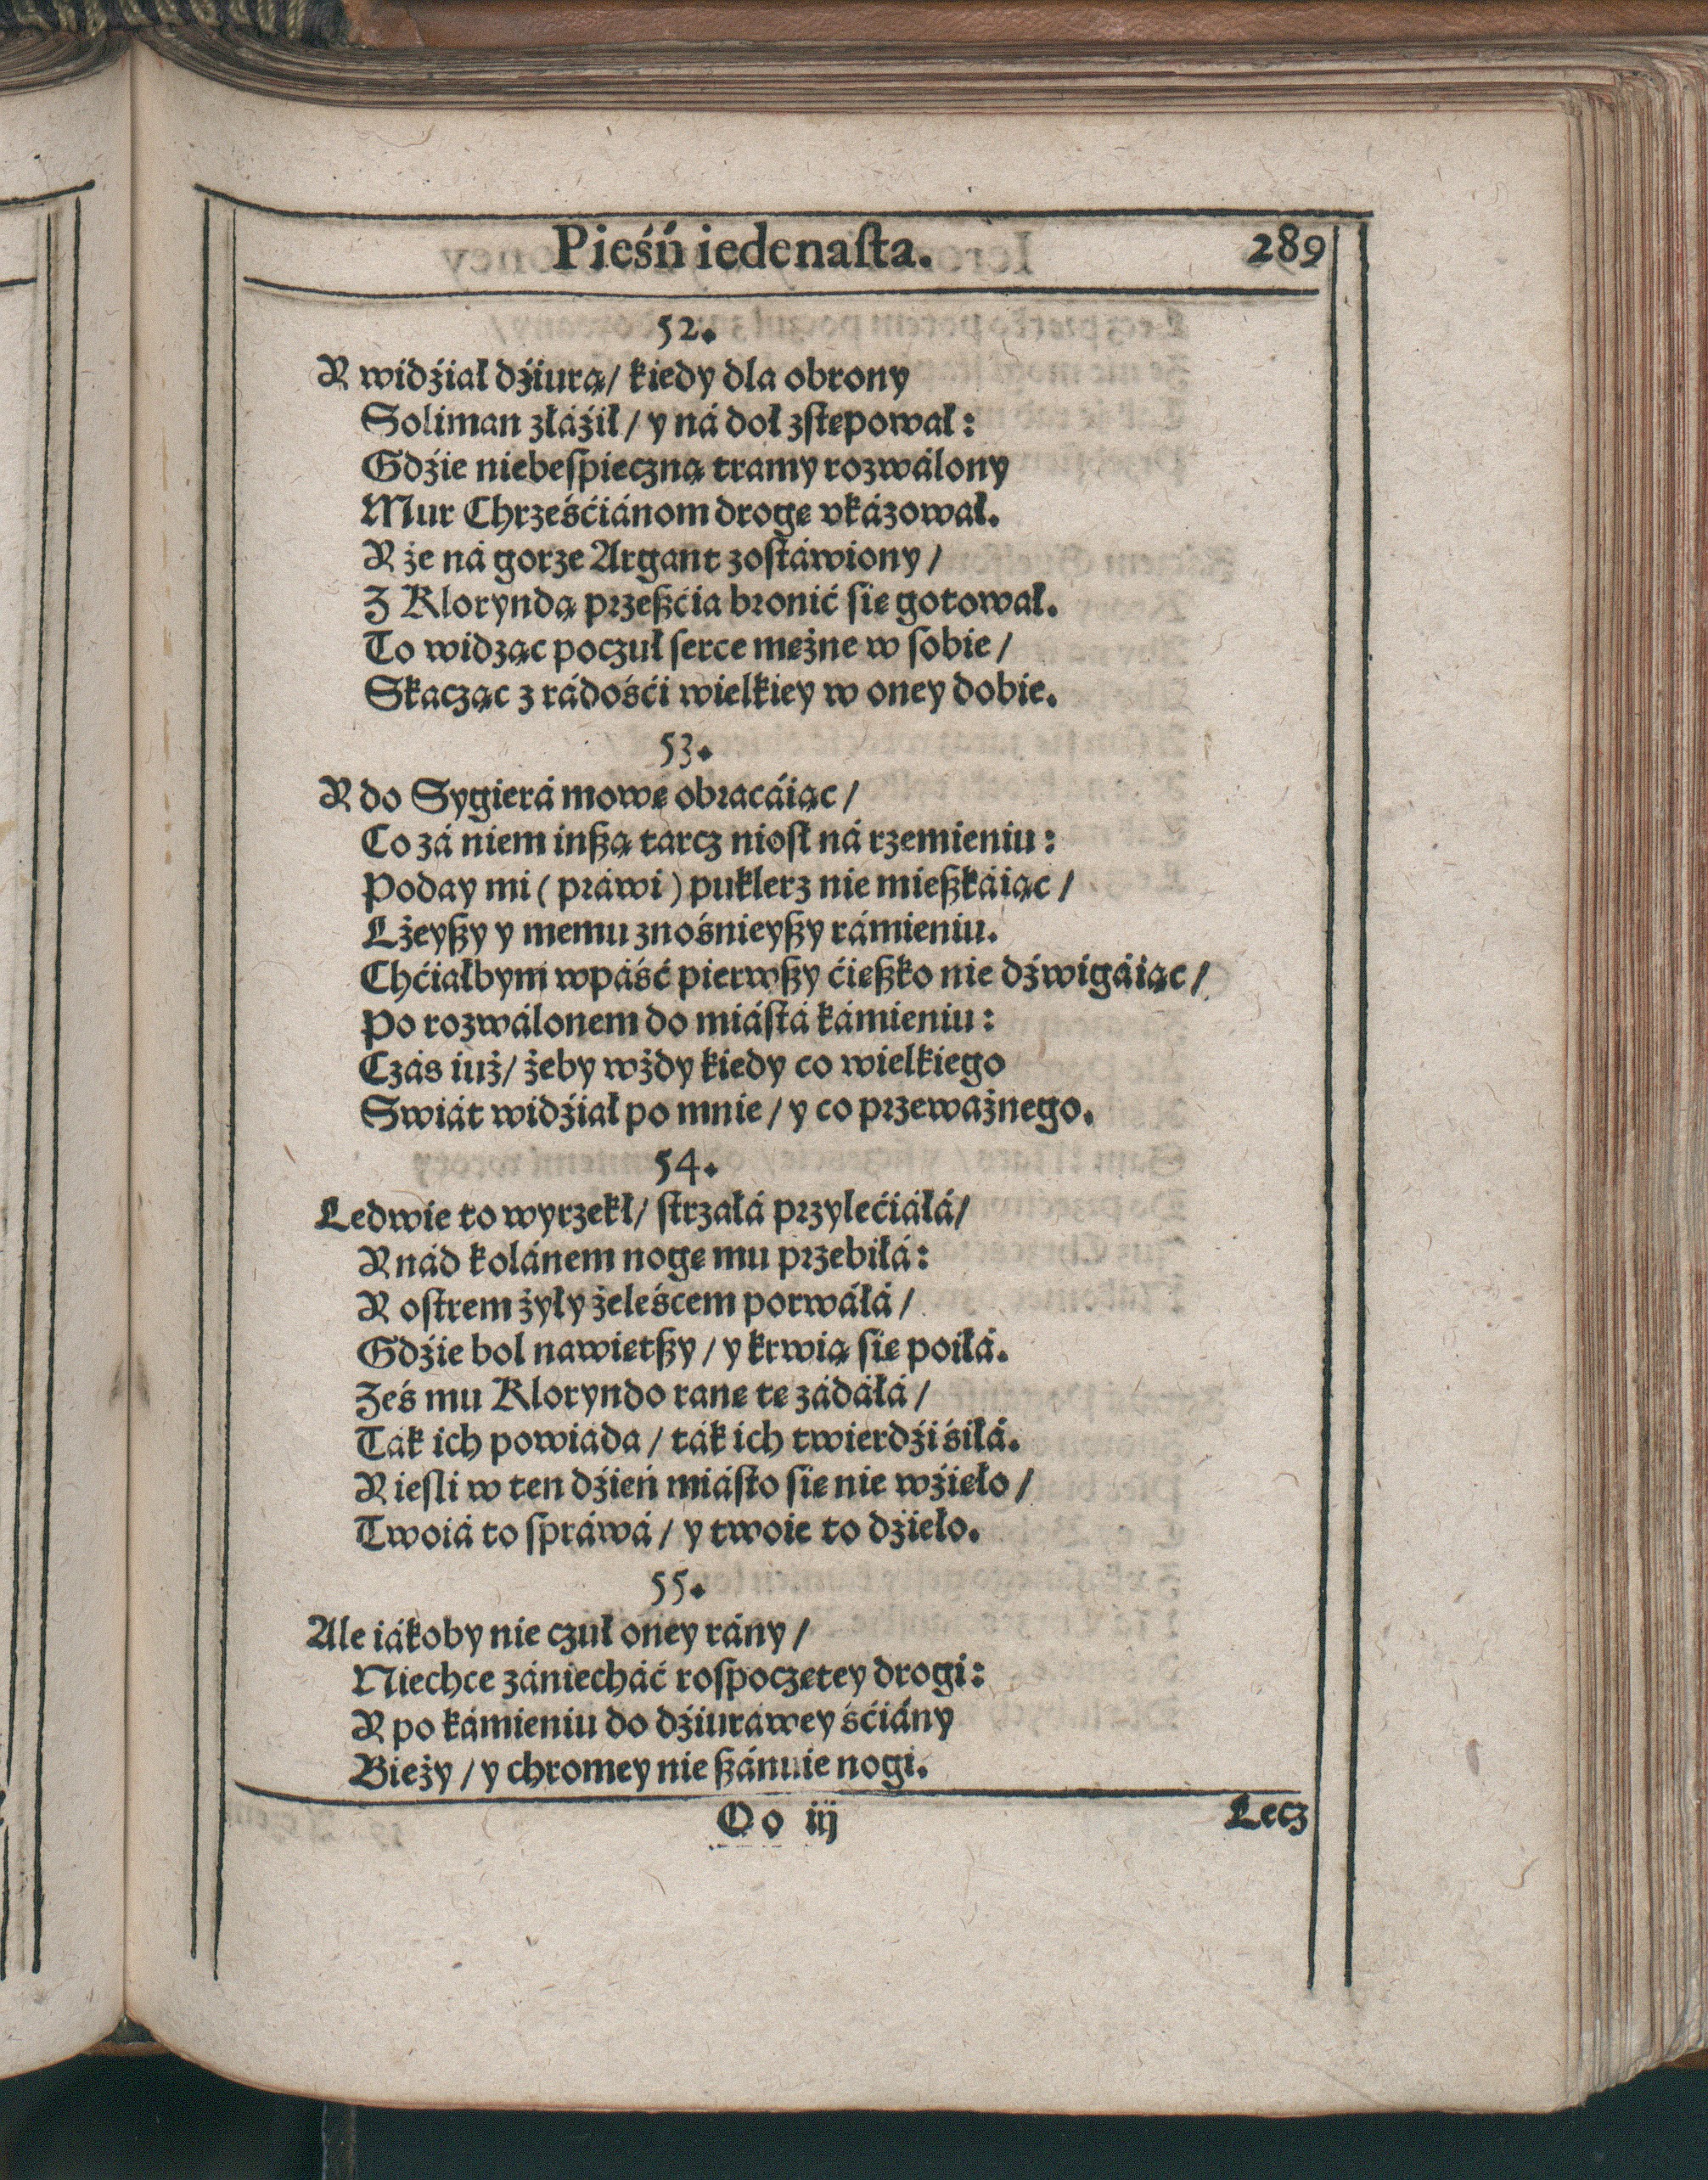 Pieśń iedenaſta. 289
52.
Y widźiał dźiurą/ kiedy dla obrony
Soliman złáźił/ y ná doł zſtępował:
Gdźie niebeſpieczną tramy rozwálony
Mur Chrześćiánom drogę vkázował.
Y że ná gorze Argant zoſtáwiony/
Z Kloryndą przeßćia bronić ſię gotował.
To widząc poczuł ſerce mężne w ſobie/
Skacząc z rádośći wielkiey w oney dobie.
53.
Y do Sygierá mowę obracáiąc/
Co zá niem inßą tarcz nioſł ná rzemieniu:
Poday mi (práwi) puklerz nie mießkáiąc/
Lżeyßy y memu znośnieyßy rámieniu.
Chćiałbym wpáść pierwßy ćießko nie dźwigáiąc/
Po rozwálonem do miáſtá kámieniu:
Czás iuż/ żeby wżdy kiedy co wielkiego
Swiát widźiał po mnie/ y co przeważnego.
54.
Ledwie to wyrzekł/ ſtrzałá przylećiáłá/
Y nád kolánem nogę mu przebiłá:
Y oſtrem żyły żeleścem porwáłá/
Gdźie bol nawiętßy/ y krwią ſię poiłá.
Żeś mu Kloryndo ranę tę zádáłá/
Ták ich powiáda/ ták ich twierdźi śiłá.
Y ieſli w ten dźień miáſto ſię nie wźięło/
Twoiá to ſpráwá/ y twoie to dźieło.
55.
Ale iákoby nie czuł oney rány/
Niechce zániecháć roſpoczętey drogi:
Y po kámieniu do dźiuráwey śćiány
Bieży/ y chromey nie ßánuie nogi.
Oo iij Lecz